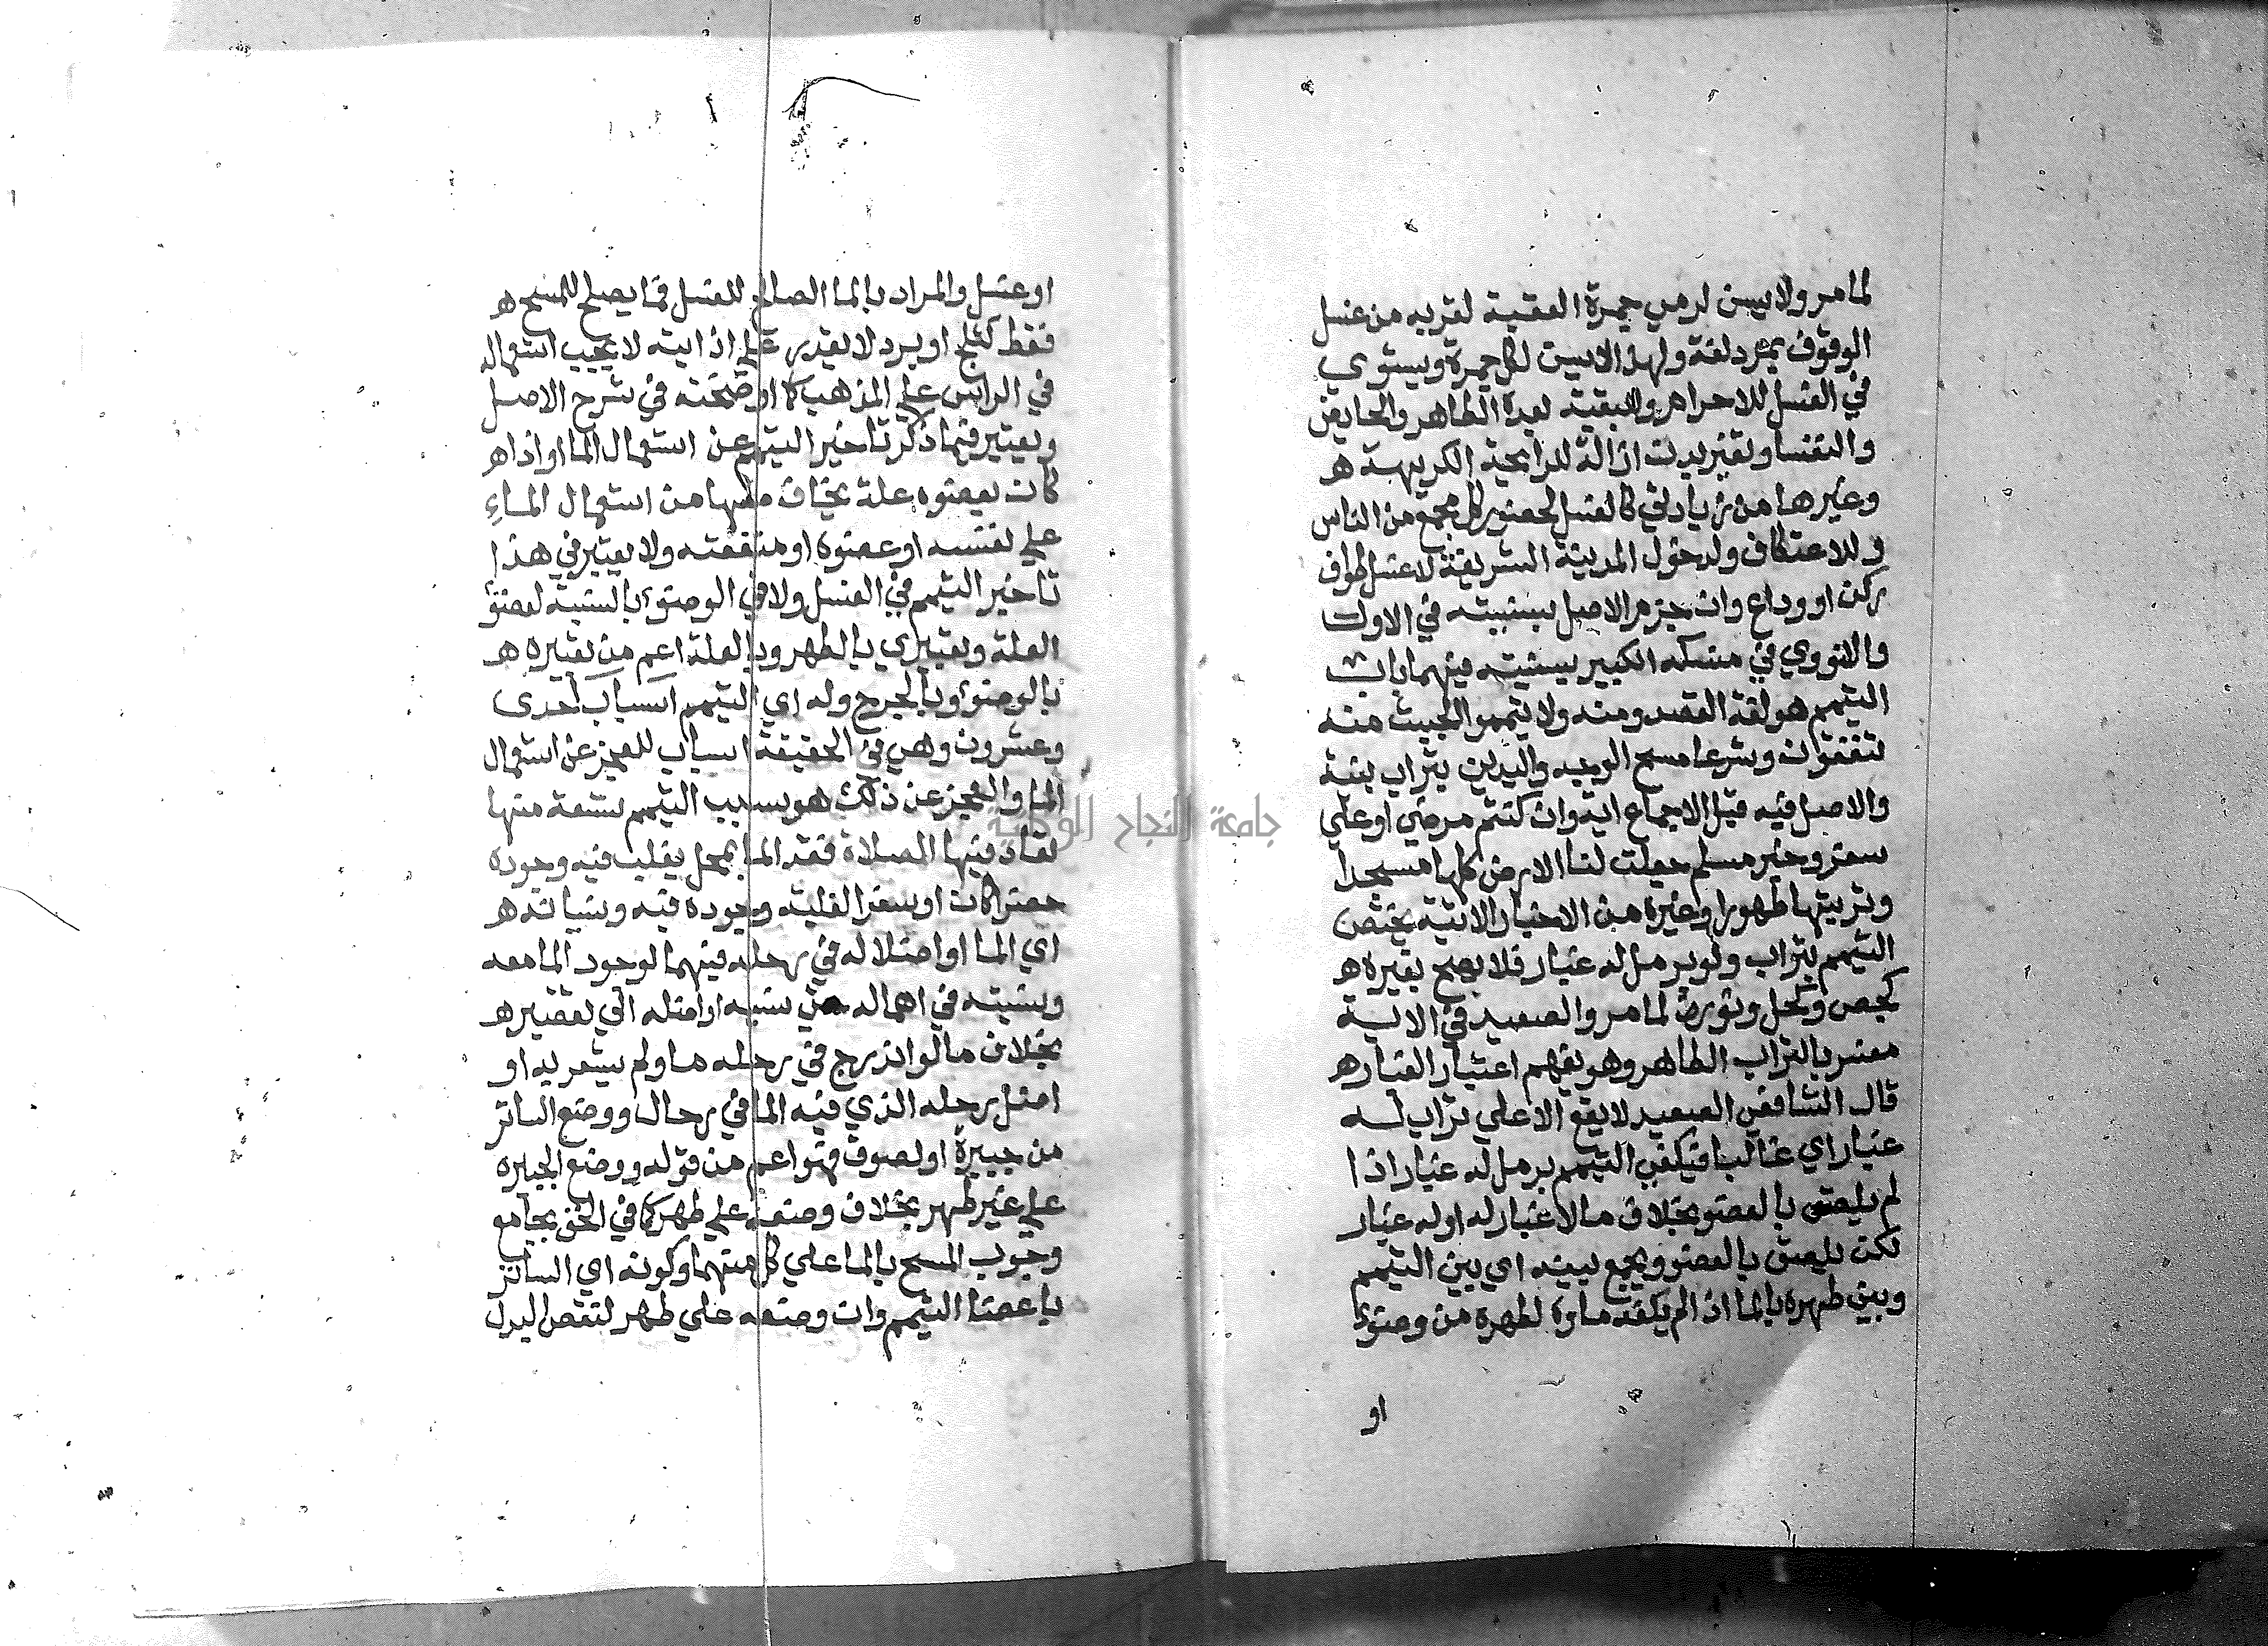 لما مر ولا يسن لرمي جمرة العقبة لقربه من غسل
الوقوف بمزدلفة ولهذا لا يسن لكل جمرة ويستوي
في الغسل للاحرام والبقية بعده الطاهر والحايض
والنفسا وتعبيري بازالة للرايحة الكريهة ه
وغيرها من زيادتي كالغسل لحضور كل مجمع من الناس
وللاعتكاف ولدخول المدينة الشريفة لا غسل طواف
ركن او وداع وان جزم الاصل بسنيته في الاول
والنووي في منسكه الكبير بسنيته فيهما باب
التيمم هو لغة القصد ومنه ولا تيمموا الخبيث منه
تنفقون وشرعا مسح الوجه واليدين بتراب بنية
والاصل فيه قبل الاجماع اية وان كنتم مرضي او علي
سفر وخبر مسلم جعلت لنا الارض كلها مسجدا
وتربتها طهورا وغيره من الاخبار الاتية يختص
التيمم بتراب ولو برمل له غبار فلا يصح بغيره ه
كجص وكحل ونورة لما مر والصعيد في الاية
مفسر بالتراب الطاهر وهو يفهم اعتبار الغبار ه
قال الشافعي الصعيد لا يقع الا علي تراب له
غبار اي غالبا فيكفي التيمم برمل له غبار اذا
لم يلصق بالعضو بخلاف ما لا غبار له او له غبار
لكن يلصق بالعضو ويجمع بينه اي بين التيمم
وبين طهره بالما اذا لم يكفه ماوه لطهره من وضوء
او
او غسل والمراد بالما الصالح للغسل فما يصلح للمسح ه
فقط كثلج او برد لا يقدر علي اذابته لا يجب استعماله
في الراس علي المذهب كما اوضحته في شرح الاصل
ويعتبر فيما ذكر تاخير التيمم عن استعمال الما او اذا ه
كان بعضوه علة يخاف منها من استعمال الماء
علي نفسه او عضوه او منفعته ولا يعتبر في هذا
تاخير التيمم في الغسل ولا في الوضوء بالنسبة لعضو
العلة وتعبيري بالطهر وبالعلة اعم من تعبيره ه
بالوضوء وبالجرح وله اي التيمم اسباب احدى
وعشرون وهي في الحقيقة اسباب للعجز عن استعمال
الما والعجز عن ذلك هو بسبب التيمم تسعة منها
تعاد فيها الصلاة فقد الما بمحل يغلب فيه وجوده
حضرا كان او سفرا لغلبة وجوده فيه ونسيانه ه
اي الما او اضلاله في رحله فيهما لوجود الما معه
ونسبته في اهماله حتي نسيه او اضله الي تقصير ه
بخلاف ما لو ادرج في رحله ما ولم يشعر به او
اضل رحله الذي فيه الما في رحال ووضع الساتر
من جبيرة او لصوق فهو اعم من قوله ووضع الجبيره
علي غير طهر بخلاف وضعه علي طهر كما في الخف بجامع
وجوب المسح بالما علي كل منهما وكونه اي الساتر
باعضا التيمم وان وضعه علي طهر لنقص البدل
جامعة النجاح الوطنية